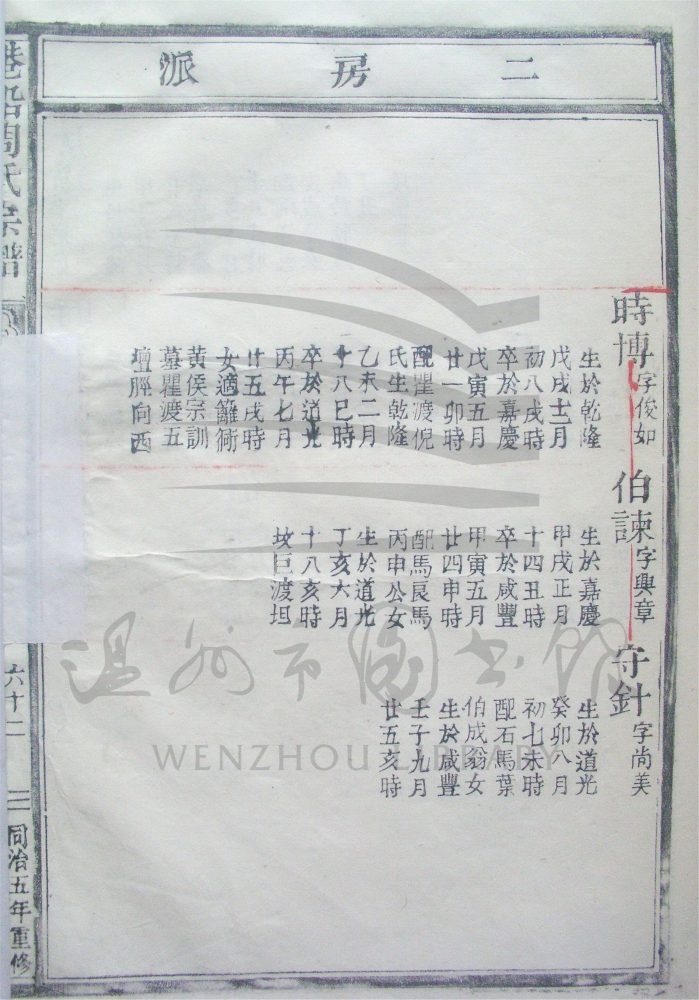 二房派
時博字俊如
生於乾隆
戊戌十二月
初八戌時
卒於嘉慶
戊寅五月
廿一卯時
配瞿渡倪
氏生乾隆
乙未二月
十八巳時
卒於道光
丙午七月
廿五戌時
女適籬衕
黃侯宗訓
墓瞿渡五
壇脛向西
伯諫字興章
生於嘉慶
甲戌正月
十四丑時
卒於咸豐
甲寅五月
廿四申時
配馬良馬
丙申公女
生於道光
丁亥六月
十八亥時
坟巨渡坦
守針字尚美
生於道光
癸卯八月
初七未時
配石馬葉
伯成翁女
生於咸豐
壬子九月
廿五亥時
周氏宗譜
六十二
同治五年重修
温州市图书馆
WENZHOU LIBRARY